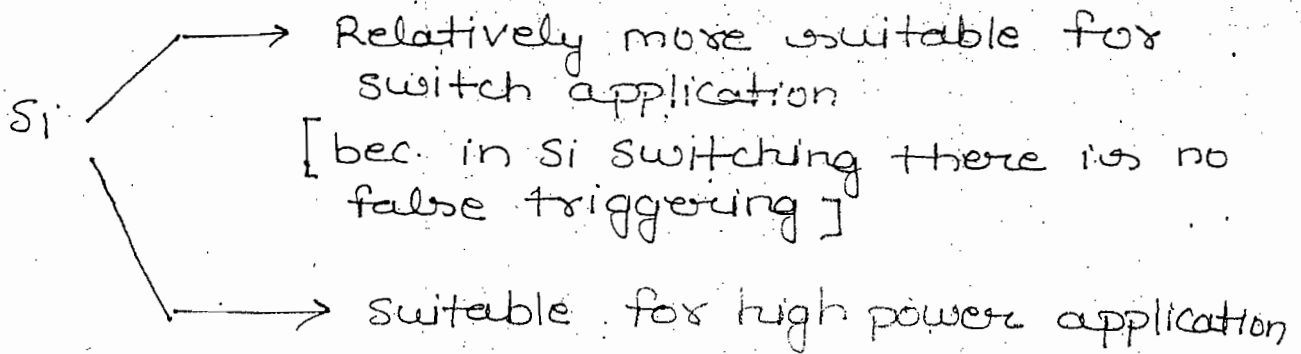 Relatively more suitable for
switch application
Si
[bec. in Si switching there is no
false triggering]
suitable for high power application